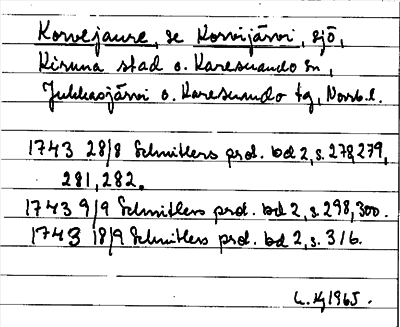 Korvejaure, se Korvijärvi, sjö,
Kiruna stad o. Karesuando sn,
Jukkasjärvi o. Karesuando tg, Norrb.l.
1743 28/8 Schnitlers prot. bd 2, s. 278, 279,
281, 282.
1743 9/9 Schnitlers prot. bd 2, s. 298, 300.
1743 18/9 Schnitlers prot. bd 2, s. 316.
1965.